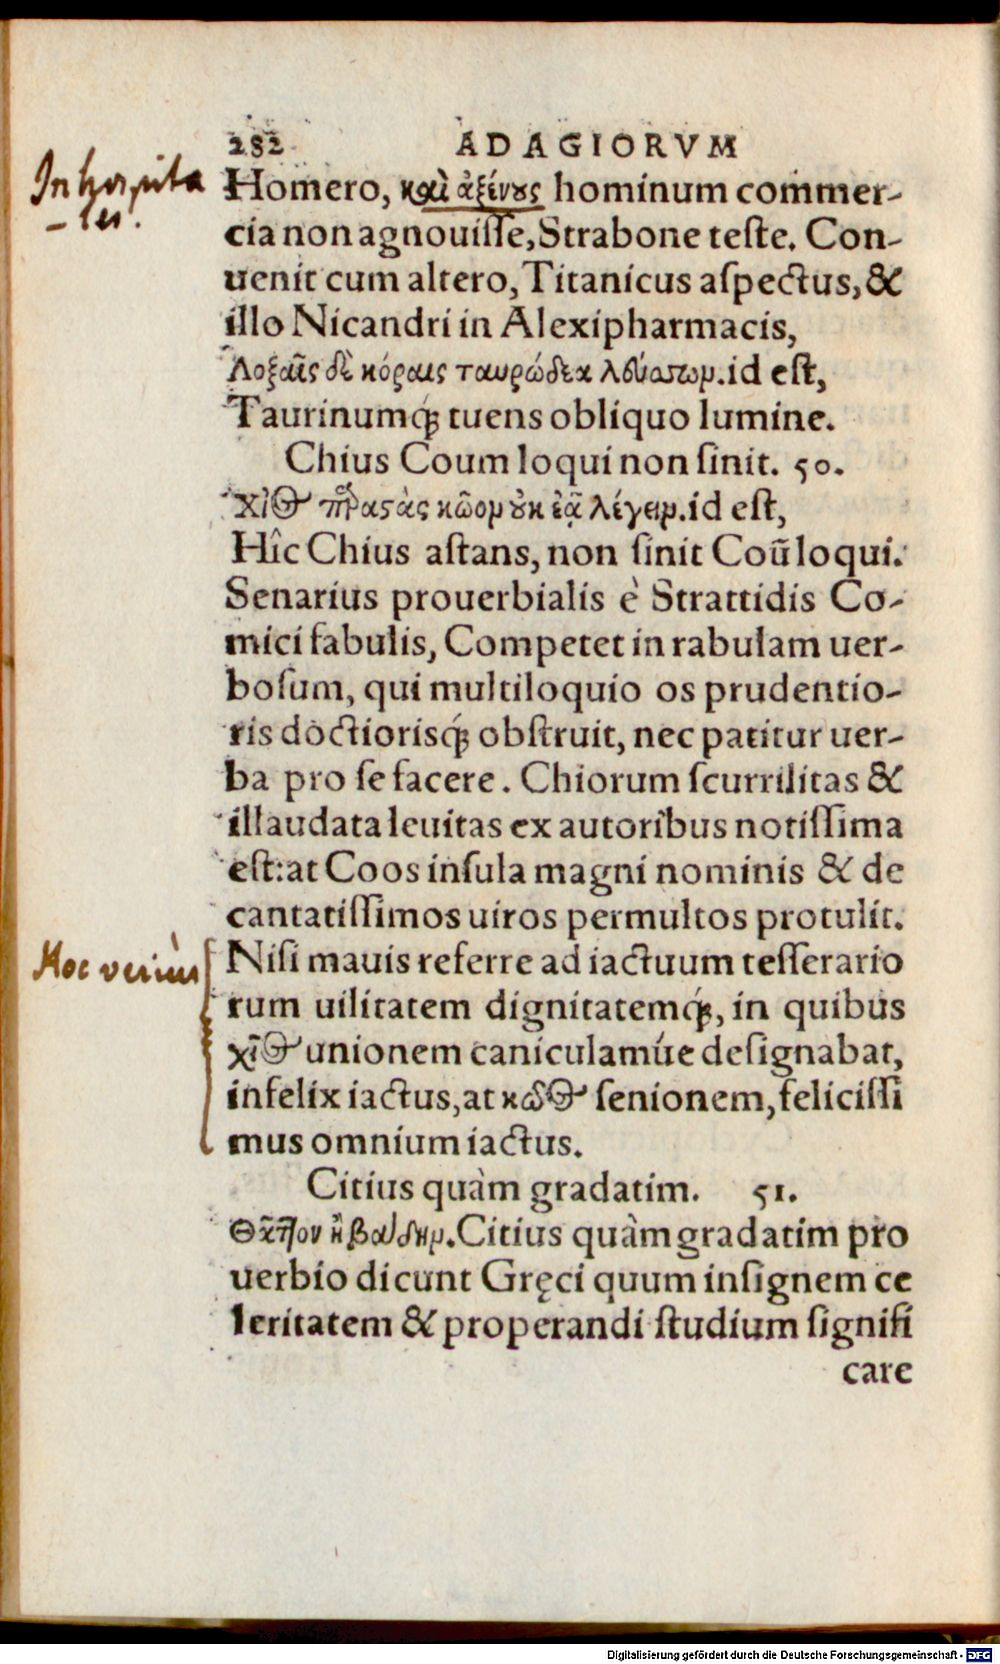 282 ADAGIORVM
Inhospita
-les.
Homero, καὶ ἀξένους hominum commer-
cia non agnouiſſe, Strabone teſte. Con-
uenit cum altero, Titanicus aſpectus, &
illo Nicandri in Alexipharmacis,
Λοξαῖς δὲ κόραις ταυρώδεα λεύσσων. id eſt,
Taurinumq́ꝫ tuens obliquo lumine.
Chius Coum loqui non ſinit. 50.
χῖος παραστὰς κῶον οὐκ ἐᾷ λέγειν. id eſt,
Hîc Chius aſtans, non ſinit Coũ loqui.
Senarius prouerbialis è Strattidis Co-
mici fabulis, Competet in rabulam uer-
boſum, qui multiloquio os prudentio-
ris doctiorisq́ꝫ obſtruit, nec patitur uer-
ba pro ſe facere. Chiorum ſcurrilitas &
illaudata leuitas ex autoribus notiſſima
eſt: at Coos inſula magni nominis & de
cantatiſſimos uiros permultos protulit.
Hoc verius
Niſi mauis referre ad iactuum teſſerario
rum uilitatem dignitatemq́ꝫ, in quibus
χῖος unionem caniculamúe deſignabat,
infelix iactus, at κῶος ſenionem, feliciſſi
mus omnium iactus.
Citius quàm gradatim. 51.
Θᾶττον ἢ βάδην. Citius quàm gradatim pro
uerbio dicunt Gręci quum inſignem ce
leritatem & properandi ſtudium ſignifi
care
Digitalisierung gefördert durch die Deutsche Forschungsgemeinschaft - DFG